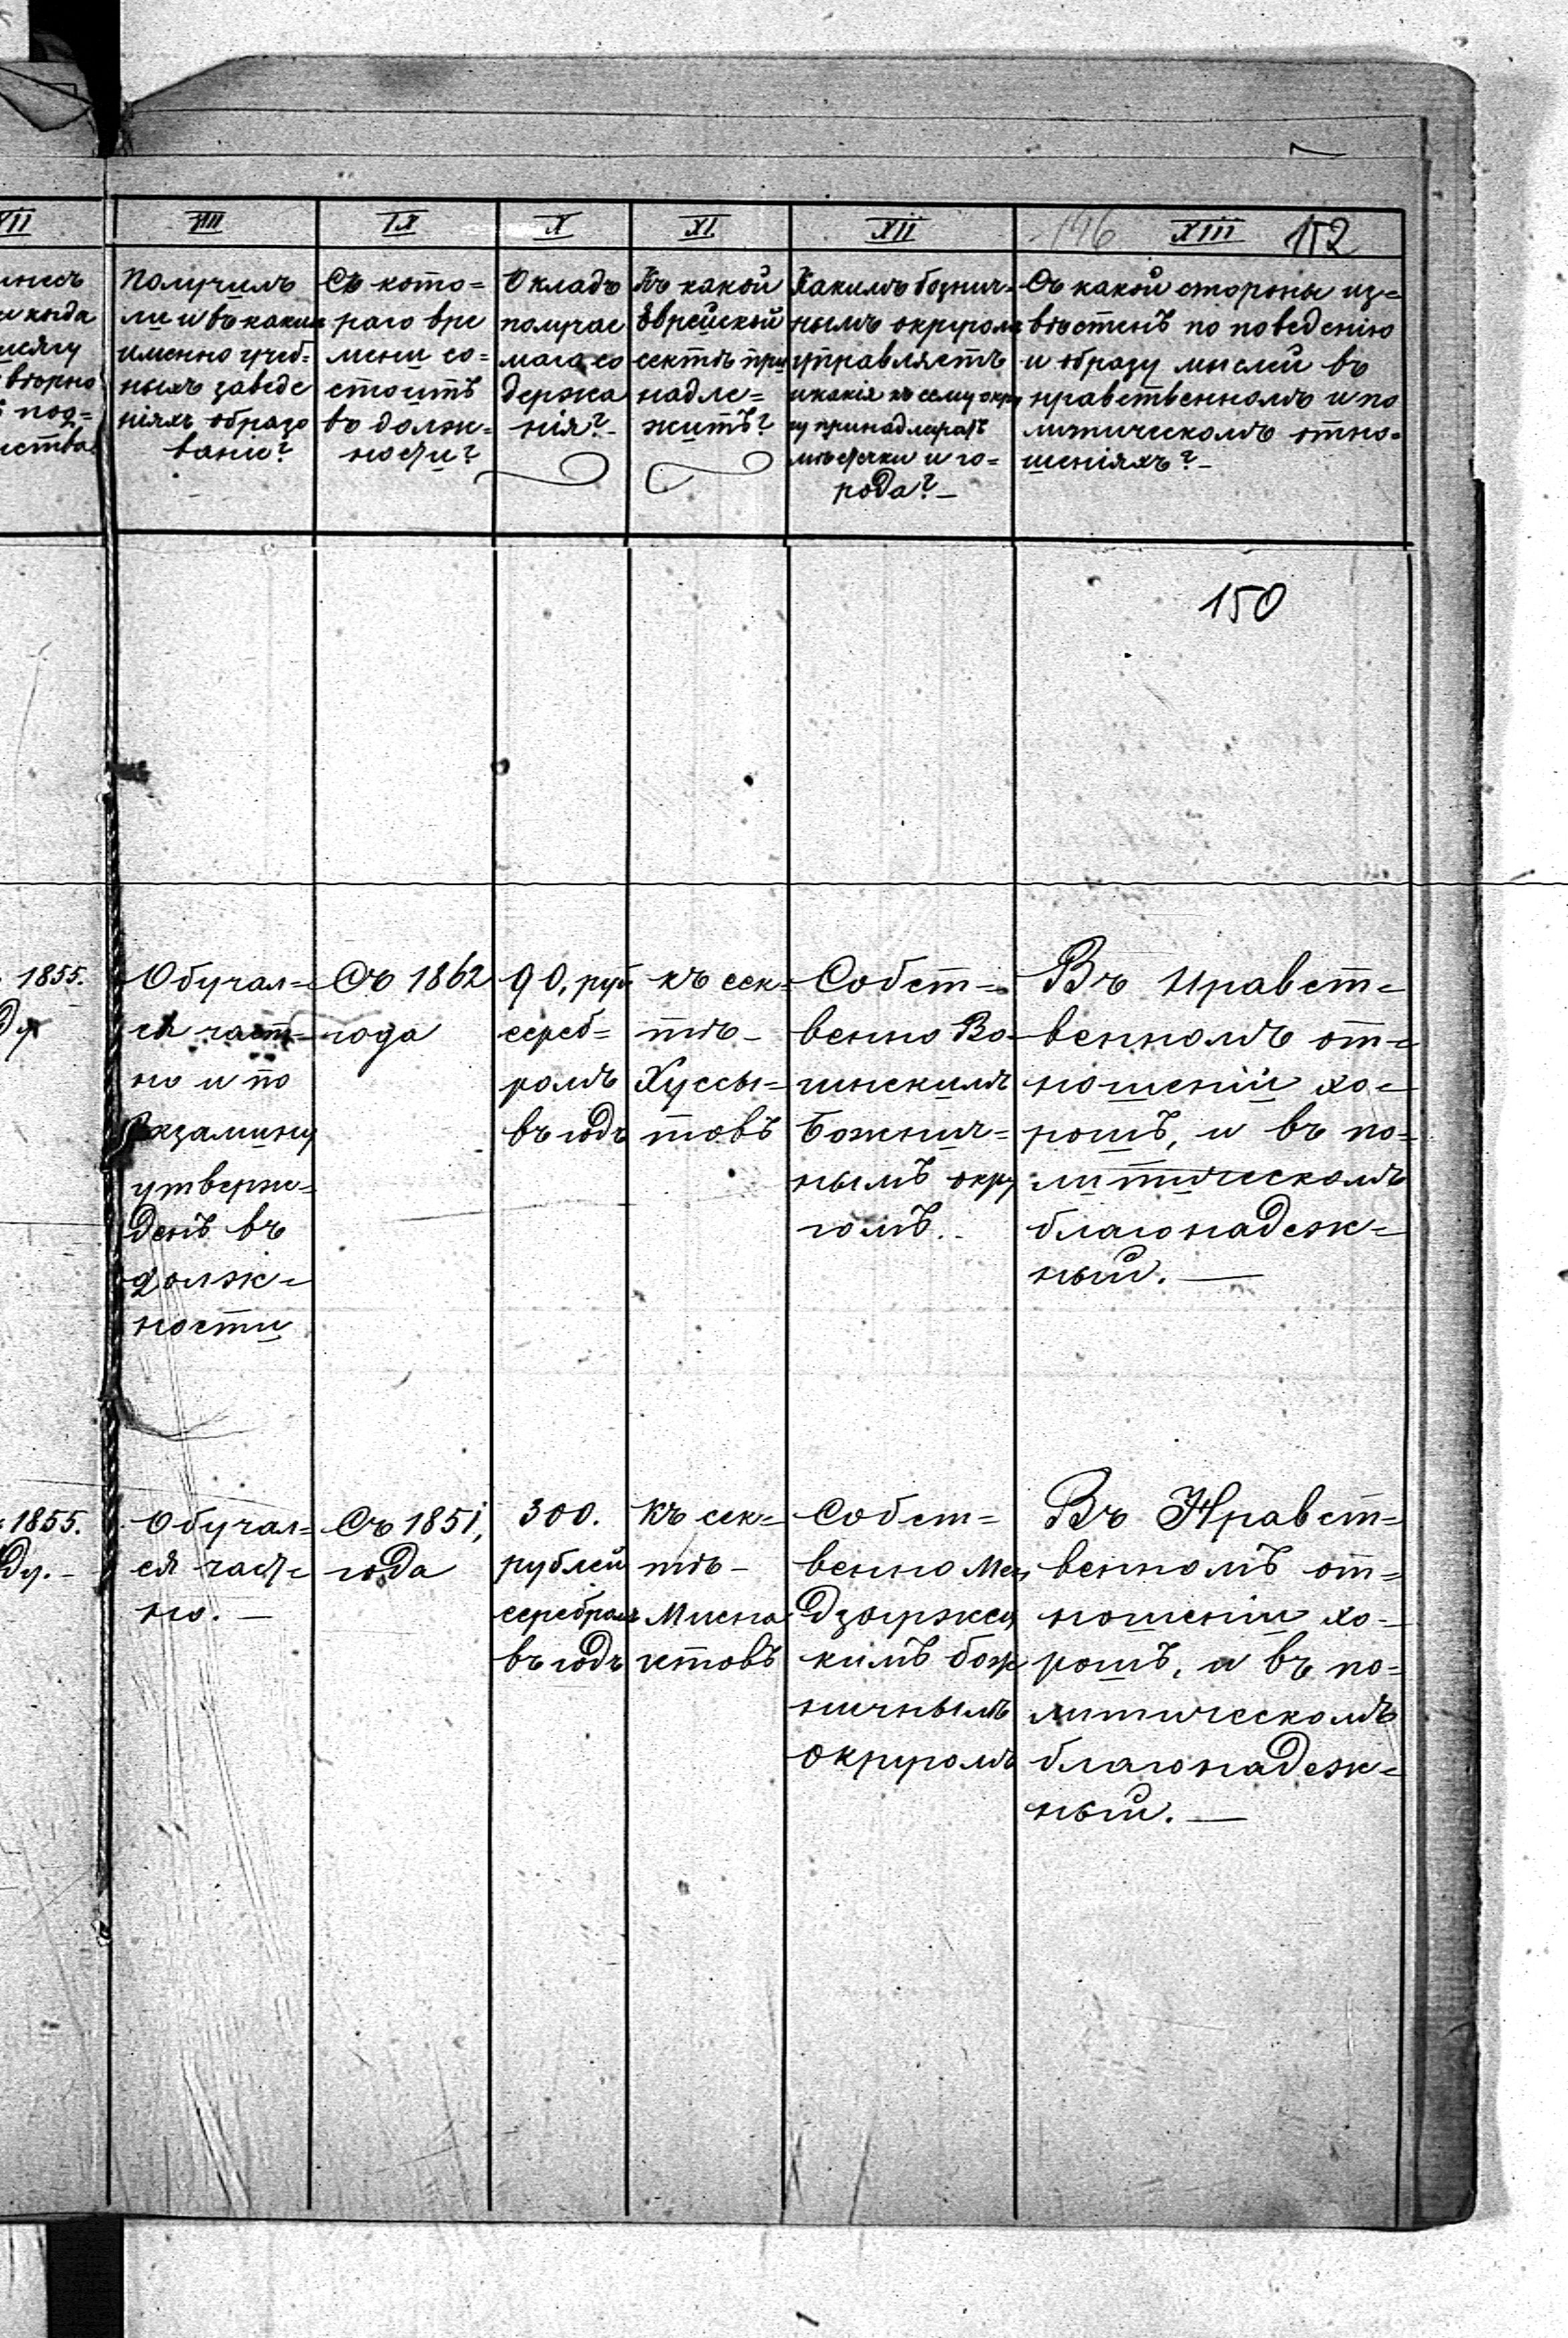 VII
VIII
IX
X
XI
XII
146 XIII 152
Получилъ
ли и въ какихъ
именно учеб-
ныхъ заведе
ніяхъ образо
ваніе?
Съ кото=
раго вре
мени со=
стоитъ
въ долж-
ности?
Окладъ
получае
маго со
держа
нія?-
Къ какой
Еврейской
сектѣ при
надле=
житъ?
Какимъ божнич-
нымъ округомъ
управляетъ
и какія къ сему окру
гу принадлежатъ
мѣстечки и го=
рода?-
Съ какой стороны из=
вѣстенъ по поведенію
и образу мыслей въ
нравственномъ и по
литическомъ отно=
шеніяхъ?-
150
1855.
ду
Обучал=
ся част-
но и по
Экзамину
утверж-
денъ въ
долж-
ности
Съ 1862
года
90, руб.
сереб=
ромъ
въ годъ
къ сек-
тѣ-
Хуссы=
товъ
Собст=
венно Во-
гинскимъ
Божнич=
нымъ окру
гомъ.
Въ Нравст=
венномъ от=
ношеніи хо=
рошъ, и въ по=
литическомъ
благонадеж=
ный.—
1855.
ду.-
Обучал=
ся част=
но.—
Съ 1851,
года
300.
рублей
серебромъ
въ годъ
Къ сек=
тѣ-
Мисна
гетовъ
Собст=
венно Меж
дзыржец
кимъ бож
ничнымъ
округомъ
Въ Нравст=
венномъ от=
ношеніи хо-
рошъ, и въ по=
литическомъ
благонадеж=
ный.—